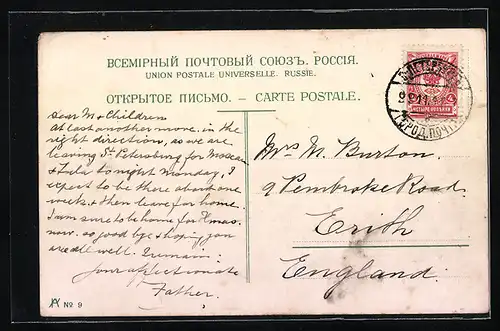 ВСЕМІРНЫЙ ПОЧТОВЫЙ СОЮЗЪ. РОССІЯ.
UNION POSTALE UNIVERSELLE. RUSSIE.
ОТКРЫТОЕ ПИСЬМО. – CARTE POSTALE.
Dear M. & Children
At last another move. in the
right direction, as we are
leaving St. Petersburg for Moscow
& Tula tonight Monday, I
expect to be there about one
week. & then leave for home.
I am sure to be home for Xmas.
now. so good bye & hoping you
are all well. I remain.
Your affectionate
Father.
Mrs M. Burton.
9 Pembroke Road.
Erith
England.
ГОРОД. ПОЧТ
№ 9